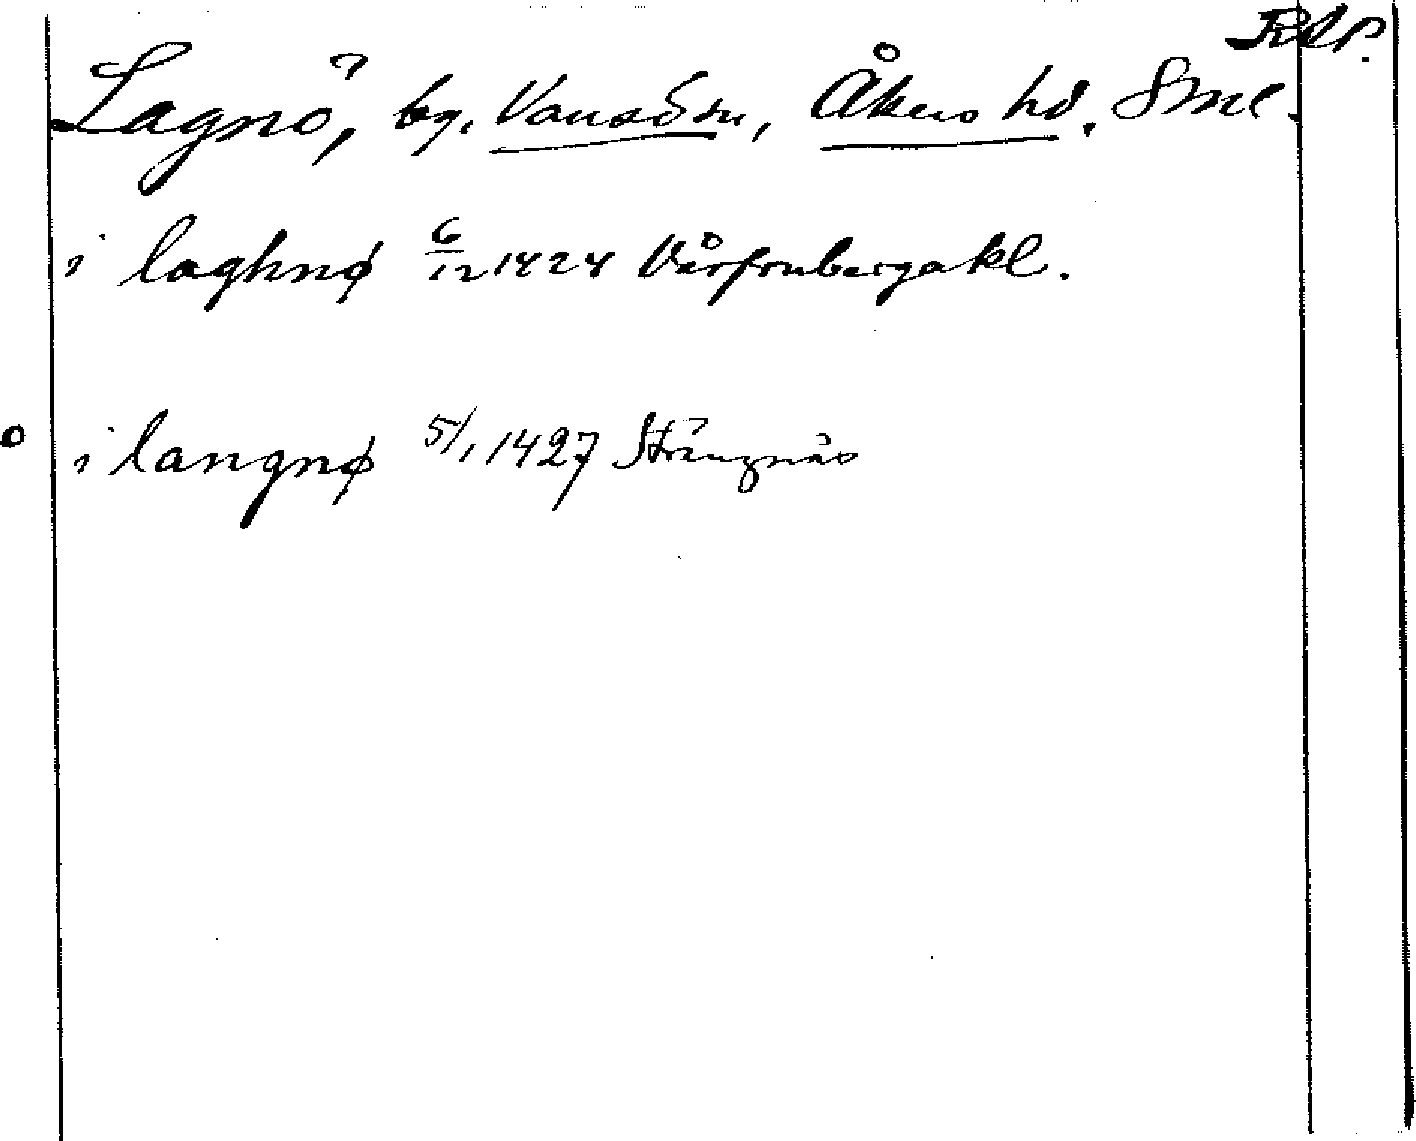 RAP.
Lagnö, by, Vansö sn, Åkers hd. Sml.
i laghnø 6/12 1424 Vårfrubergakl.
o i langnø 5/1 1427 Strängnäs